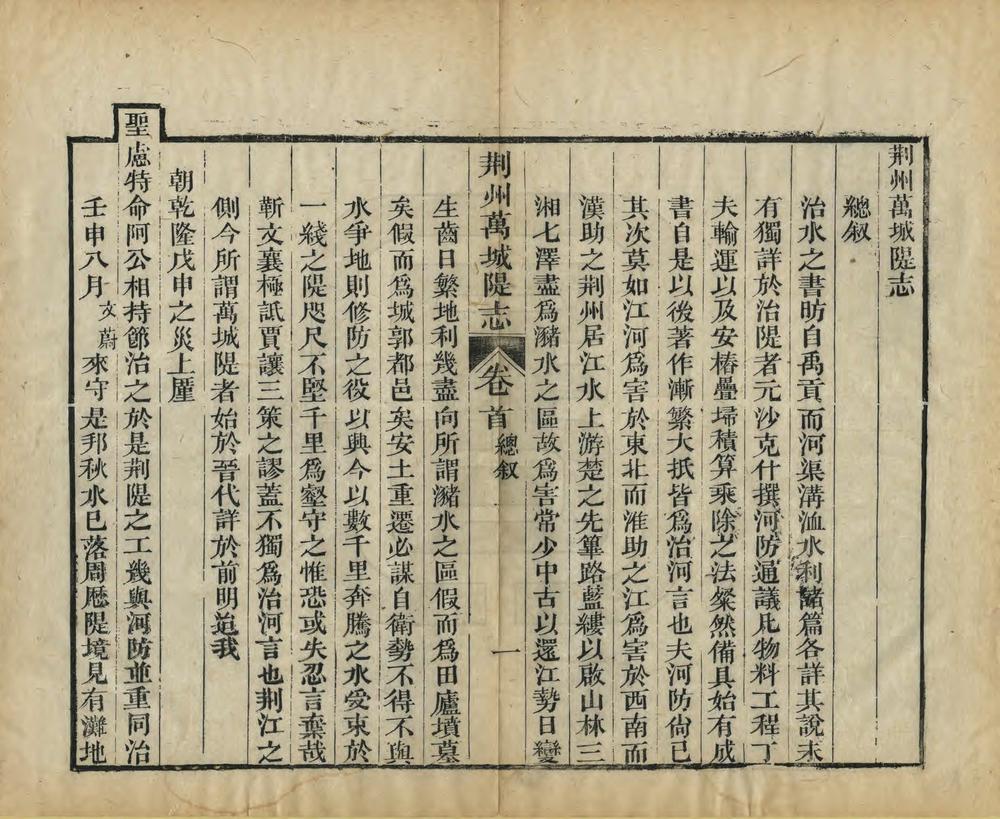 荆州萬城隄志
總叙
治水之書昉自禹貢而河渠溝洫水利諸篇各詳其說未
有獨詳於治隄者元沙克什撰河防通議凡物料工程丁
夫輸運以及安樁疊埽積算乘除之法粲然備具始有成
書自是以後著作漸繁大抵皆爲治河言也夫河防尙已
其次莫如江河爲害於東北而淮助之江爲害於西南而
漢助之荆州居江水上游楚之先篳路藍縷以啟山林三
湘七澤盡爲瀦水之區故爲害常少中古以還江勢日變
荆州萬城隄志 卷首 總叙 一
生齒日繁地利幾盡向所謂瀦水之區假而爲田廬墳墓
矣假而爲城郭都邑矣安土重遷必謀自衛勢不得不與
水爭地則修防之役以興今以數千里奔騰之水受束於
一綫之隄咫尺不堅千里爲壑守之惟恐或失忍言棄哉
靳文襄極詆賈讓三策之謬蓋不獨爲治河言也荆江之
側今所謂萬城隄者始於晉代詳於前明迨我
朝乾隆戊申之災上厪
聖慮特命阿公相持節治之於是荆隄之工幾與河防並重同治
壬申八月文蔚來守是邦秋水已落周歷隄境見有灘地